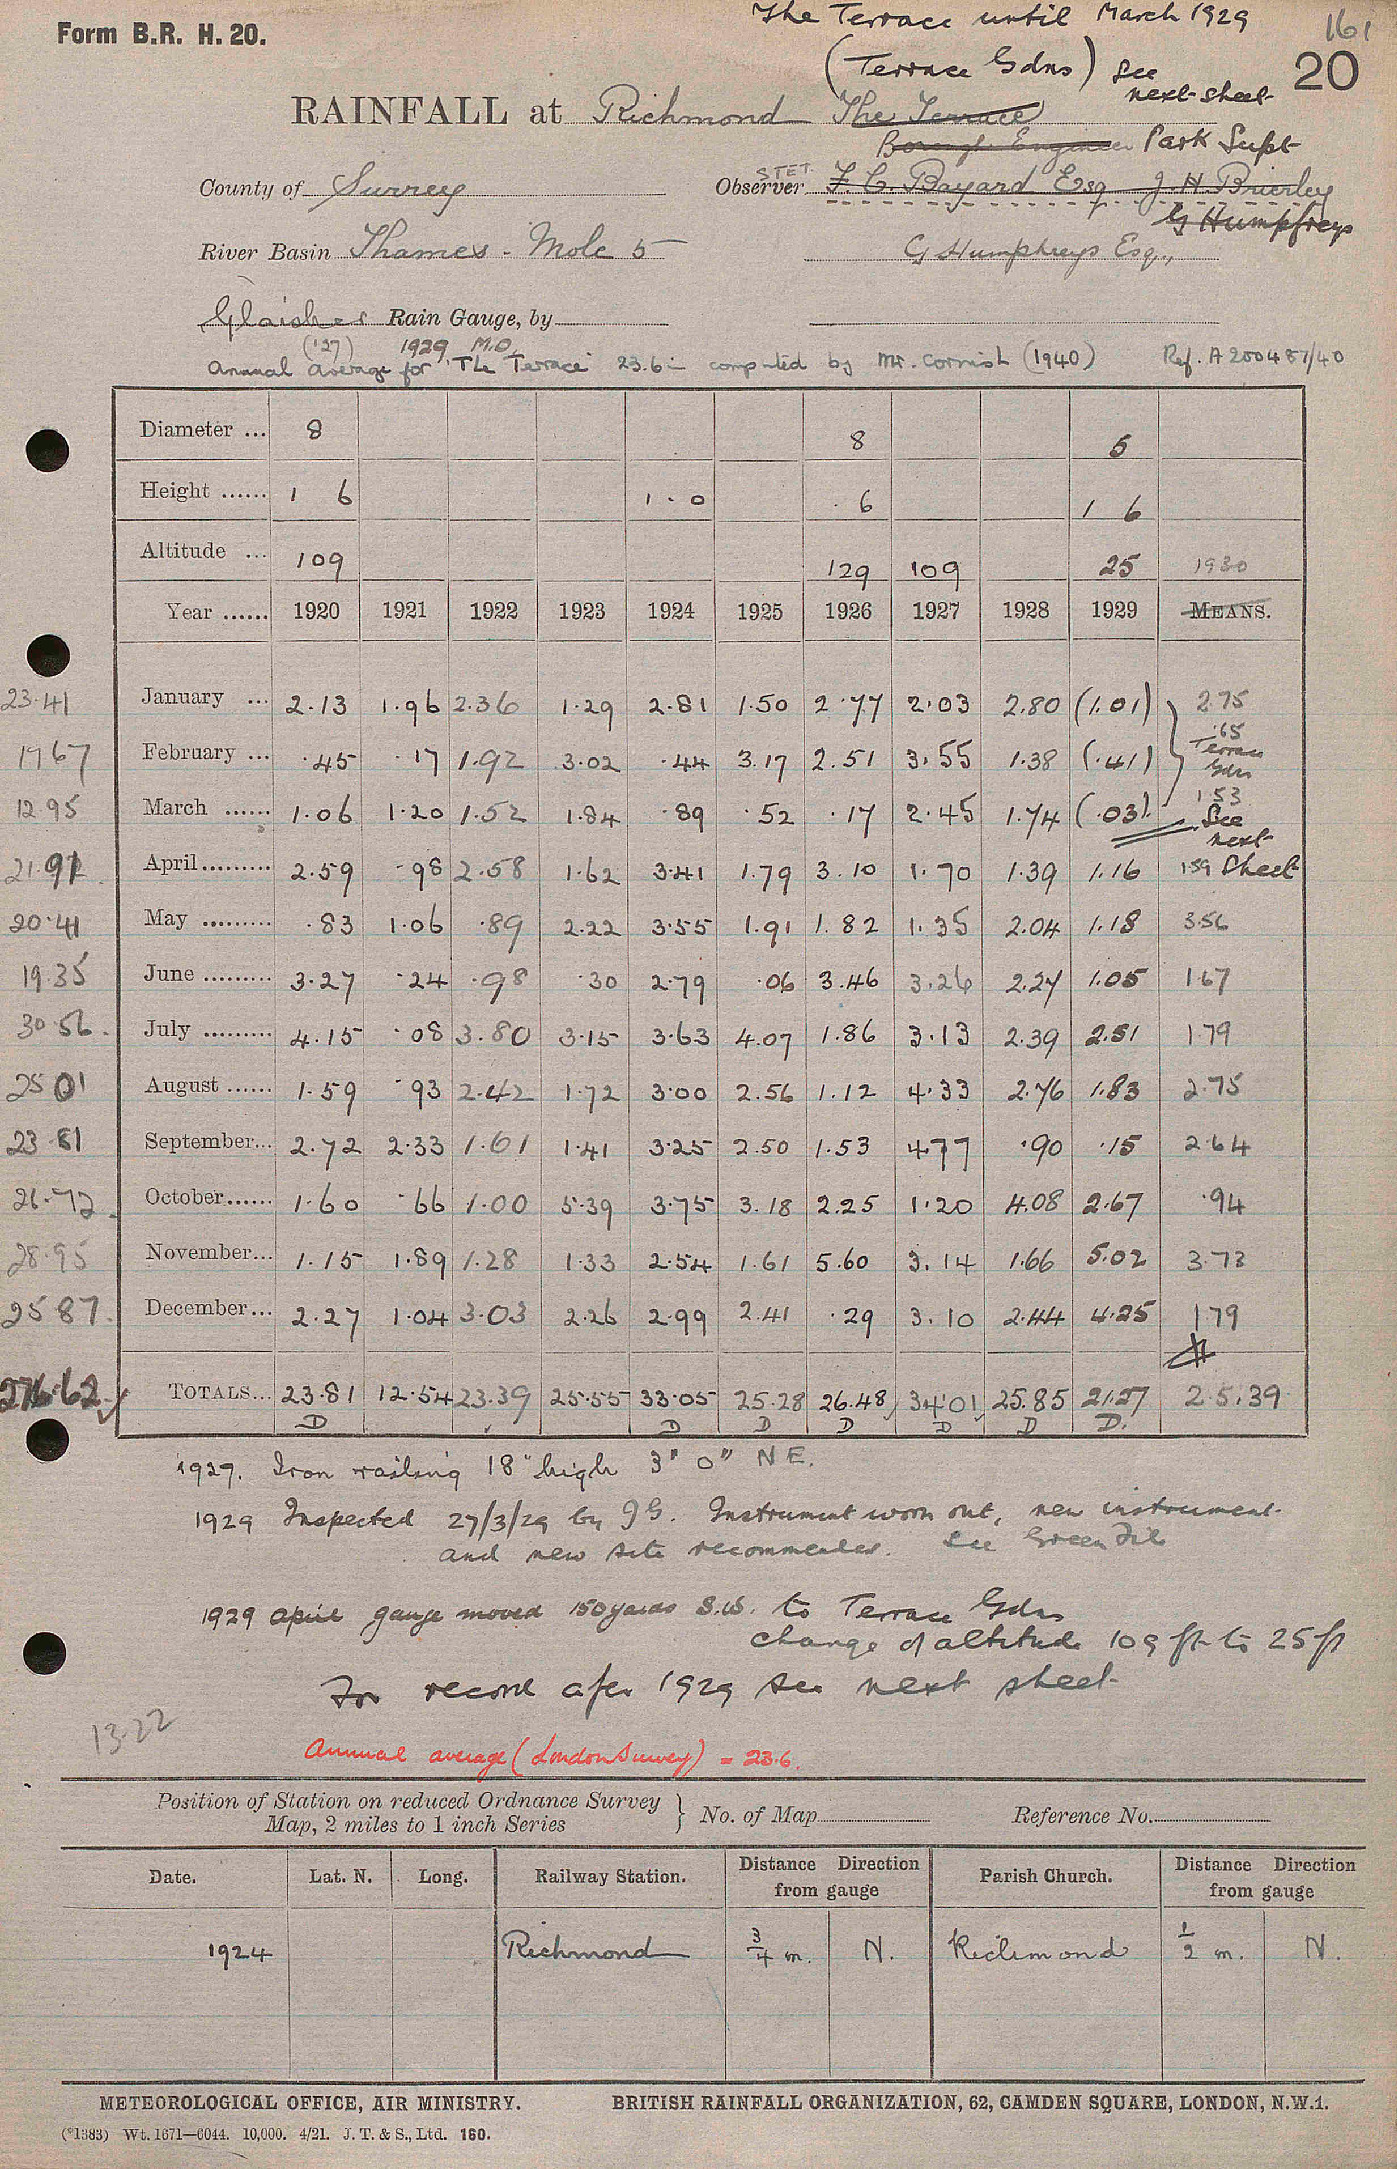 Form B.R. H. 20.
The Terrace until March 1929
161
(Terrace Gdns) See next sheet
20
RAINFALL at Richmond The Terrace
Borough Engineer Park Supt
County of Surrey
STET
Observer F. C. Bayard Esq J. H. Brierley
G Humpfreys
River Basin Thames - Mole 5
G Humphreys Esq.,
Glaisher Rain Gauge, by
('27) 1929 M.O.
Annual average for "The Terrace" 23.6in computed by Mr. Cornish (1940) Ref. A200487/40
Diameter ... 8 8 5
Height ...... 1 6 1 · 0 · 6 1 6
Altitude ... 109 129 109 25 1930
Year ...... 1920 1921 1922 1923 1924 1925 1926 1927 1928 1929 MEANS.
23·41 January ... 2·13 1·96 2·36 1·29 2·81 1·50 2·77 2·03 2.80 (1.01) 2.75
17 67 February ... ·45 ·17 1·92 3·02 ·44 3.17 2.51 3.55 1·38 (·41) ·65 Terrace Gdns
12 95 March ...... 1·06 1·20 1·52 1·84 ·89 ·52 ·17 2·45 1.74 (·03) 1·53 See next
21.91 April......... 2·59 ·98 2·58 1·62 3·41 1.79 3.10 1.70 1·39 1.16 1·59 Sheet
20·41 May ......... ·83 1·06 ·89 2·22 3·55 1.91 1.82 1.35 2.04 1.18 3·56
19·35 June ......... 3·27 ·24 ·98 ·30 2·79 ·06 3.46 3.26 2.27 1.05 1·67
30·56 July ......... 4·15 ·08 3·80 3·15 3·63 4.07 1.86 3·13 2.39 2.51 1·79
25 01 August ...... 1·59 ·93 2·42 1·72 3·00 2.56 1.12 4·33 2.76 1.83 2·75
23 81 September... 2.72 2·33 1·61 1·41 3·25 2.50 1.53 4·77 ·90 ·15 2·64
26·72 October...... 1·60 ·66 1·00 5·39 3·75 3.18 2.25 1·20 4.08 2.67 ·94
28·95 November... 1·15 1·89 1·28 1·33 2·54 1.61 5.60 3.14 1.66 5.02 3·73
25 87 December... 2·27 1·04 3·03 2·26 2·99 2.41 ·29 3.10 2.44 4.25 1·79
276·62 TOTALS... 23·81 12·54 23·39 25·55 33·05 25·28 26.48 34·01 25.85 21.27 25.39
D D D D D D D.
1927. Iron railing 18" high 3" 0" NE.
1929 Inspected 27/3/29 by JG. Instrument worn out, new instrument
and new site recommended. See Green File
1929 April gauge moved 150 yards S.W. to Terrace Gdns
change of altitude 109 ft to 25 ft
For record after 1929 see next sheet
13·22
Annual average (London Survey) = 23.6.
Position of Station on reduced Ordnance Survey Map, 2 miles to 1 inch Series } No. of Map Reference No.
Date. Lat. N. Long. Railway Station. Distance Direction from gauge Parish Church. Distance Direction from gauge
1924 Richmond 3/4 m. N. Richmond 1/2 m. N.
METEOROLOGICAL OFFICE, AIR MINISTRY. BRITISH RAINFALL ORGANIZATION, 62, CAMDEN SQUARE, LONDON, N.W.1.
(*1383) Wt. 1671—6044. 10,000. 4/21. J. T. & S., Ltd. 160.